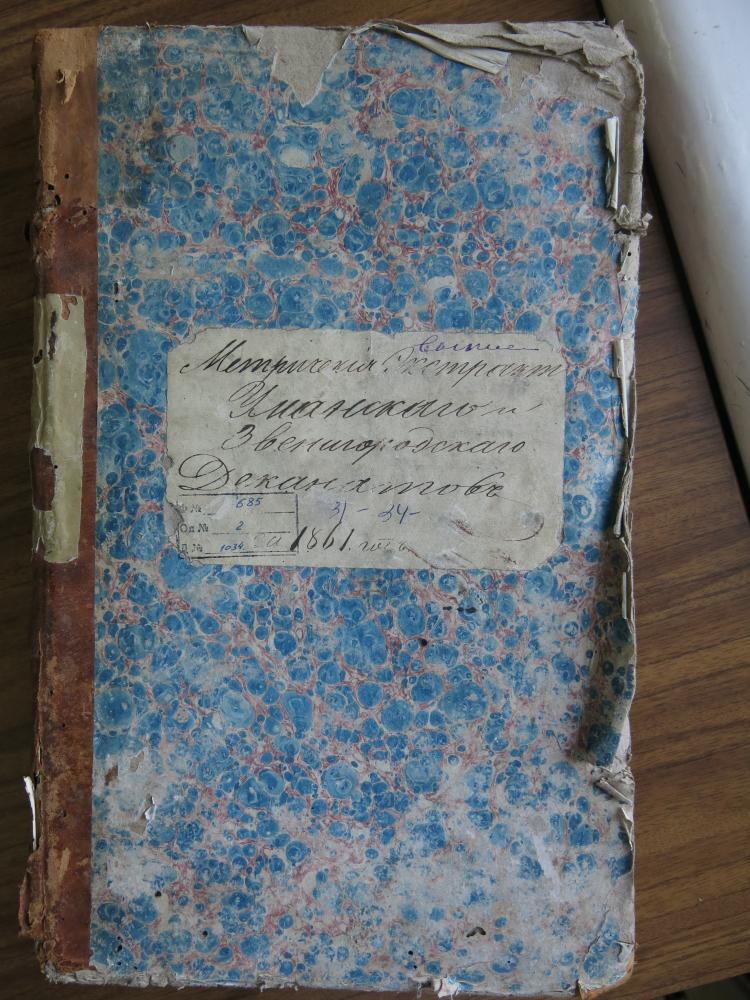 Метрическия Экстракт
Уманскаго и
Звенигородскаго
Деканатовъ
Ф № 685
Оп № 2
Д № 1034
31-34-
за 1861 годъ